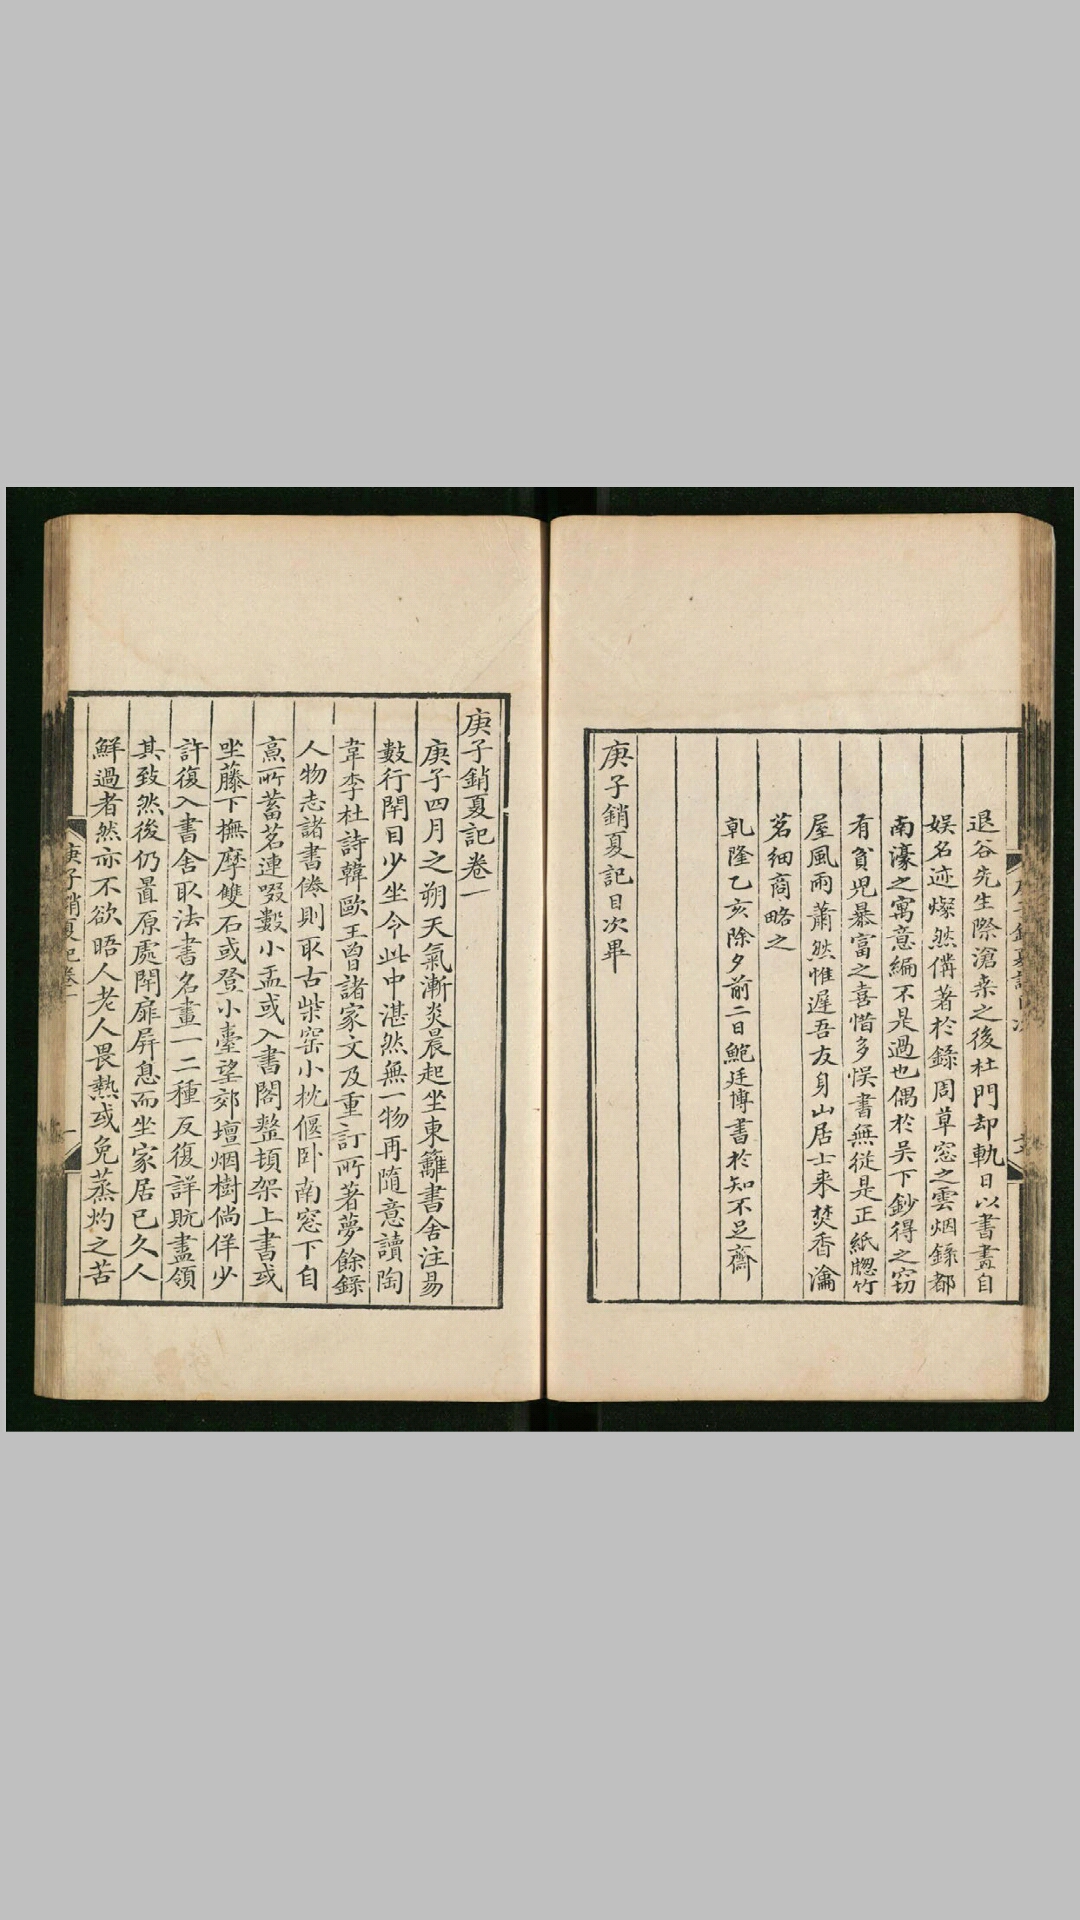 退谷先生際滄桑之後杜門却軌日以書畫自
娯名迹燦然備著於錄周草窓之雲烟錄都
南濠之寓意編不是過也偶於吳下鈔得之窃
有貧児暴富之喜惜多悞書無從是正紙牎竹
屋風雨蕭然惟遲吾友身山居士来焚香瀹
茗細商略之
乹隆乙亥除夕前二日鮑廷博書於知不足齋
庚子銷夏記目次畢
庚子銷夏記卷一
庚子四月之朔天氣漸炎晨起坐東籬書舍注易
數行閉目少坐令此中湛然無一物再隨意讀陶
韋李杜詩韓歐王曾諸家文及重訂所著夢餘錄
人物志諸書倦則取古柴窑小枕偃卧南窓下自
烹所蓄茗連啜數小盂或入書閣整頓架上書或
坐藤下撫摩雙石或登小臺望郊壇烟樹倘佯少
許復入書舍取法書名畫一二種反復詳翫盡領
其致然後仍置原處閉扉屏息而坐家居已久人
鮮過者然亦不欲晤人老人畏熱或免蒸灼之苦
庚子銷夏記卷一
一